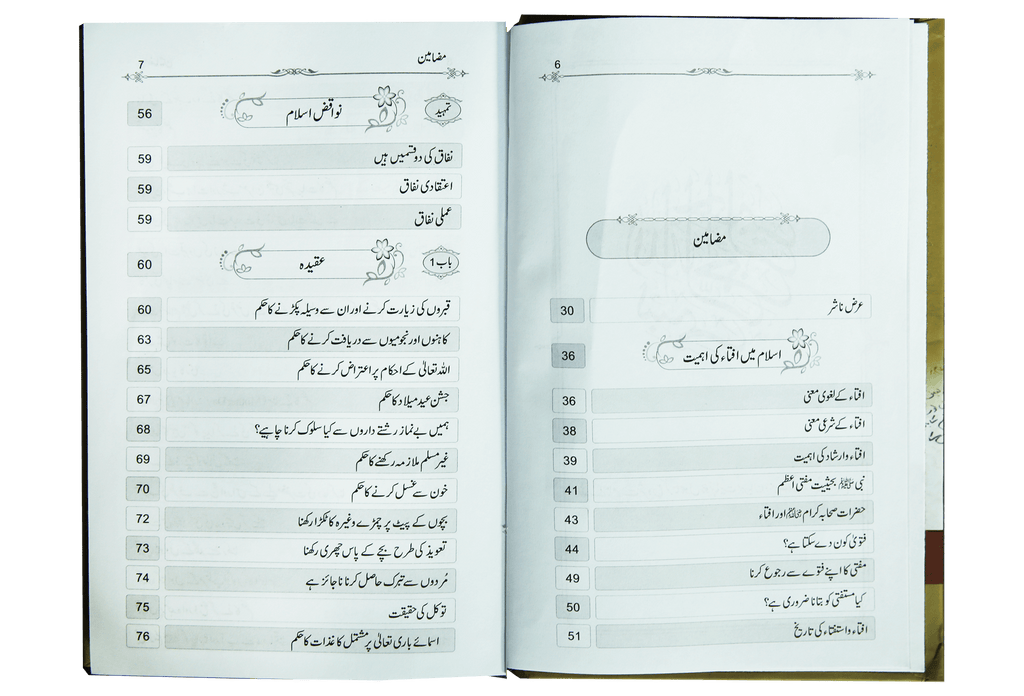 6
مضامین
عرض ناشر 30
اسلام میں افتاء کی اہمیت 36
افتاء کے لغوی معنی 36
افتاء کے شرعی معنی 38
افتاء وارشاد کی اہمیت 39
نبی ﷺ بحیثیت مفتی اعظم 41
حضرات صحابہ کرام اور افتاء 43
فتویٰ کون دے سکتا ہے؟ 44
مفتی کا اپنے فتوے سے رجوع کرنا 49
کیا مستفتی کو بتانا ضروری ہے؟ 50
افتاء و استفتاء کی تاریخ 51
مضامین 7
تمہید نواقض اسلام 56
نفاق کی دو قسمیں ہیں 59
اعتقادی نفاق 59
عملی نفاق 59
باب 1 عقیدہ 60
قبروں کی زیارت کرنے اور ان سے وسیلہ پکڑنے کا حکم 60
کاہنوں اور نجومیوں سے دریافت کرنے کا حکم 63
اللہ تعالیٰ کے احکام پر اعتراض کرنے کا حکم 65
جشن عید میلاد کا حکم 67
ہمیں بے نماز رشتے داروں سے کیا سلوک کرنا چاہیے؟ 68
غیر مسلم ملازمہ رکھنے کا حکم 69
خون سے غسل کرنے کا حکم 70
بچوں کے پیٹ پر چمڑے وغیرہ کا ٹکڑا رکھنا 72
تعویذ کی طرح بچے کے پاس چھری رکھنا 73
مُردوں سے تبرک حاصل کرنا ناجائز ہے 74
توکل کی حقیقت 75
اسمائے باری تعالیٰ پر مشتمل کاغذات کا حکم 76